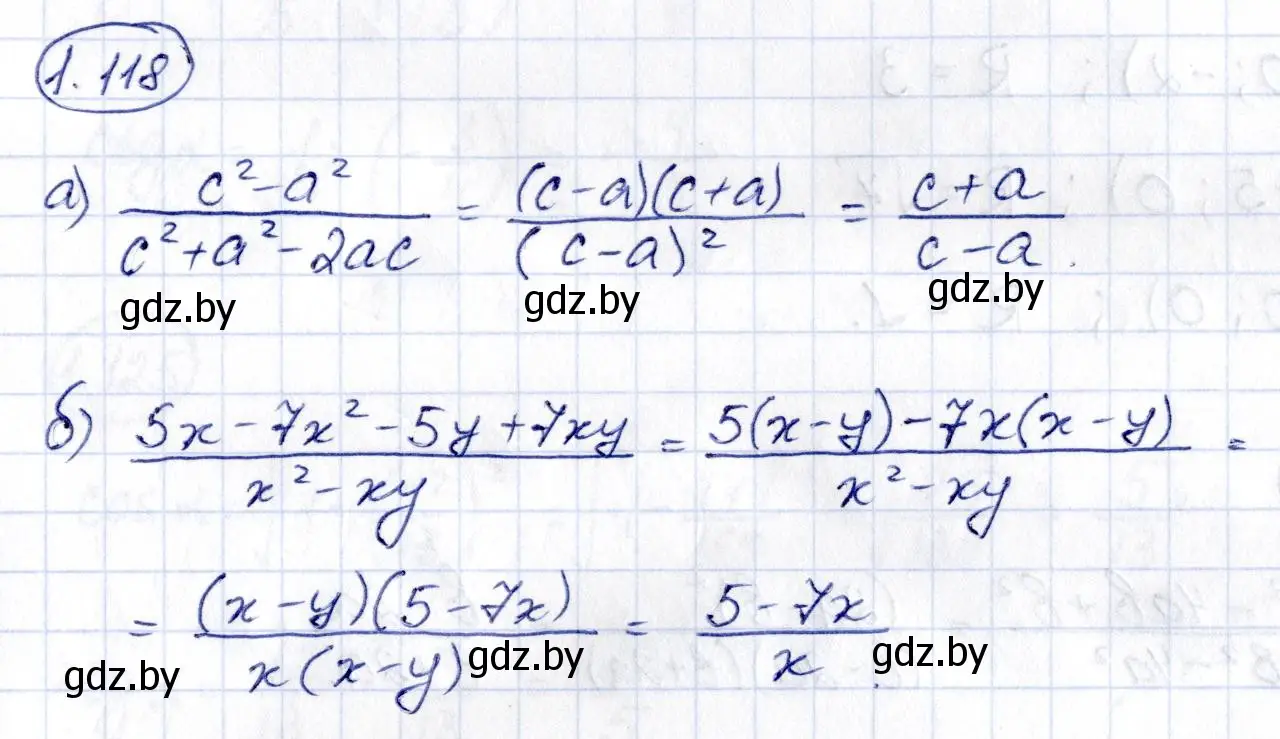 1.118
а) (c² - a²)/(c² + a² - 2ac) = ((c - a)(c + a))/((c - a)²) = (c + a)/(c - a).
gdz.by gdz.by gdz.by
б) (5x - 7x² - 5y + 7xy)/(x² - xy) = (5(x - y) - 7x(x - y))/(x² - xy) =
= ((x - y)(5 - 7x))/(x(x - y)) = (5 - 7x)/x.
gdz.by gdz.by gdz.by